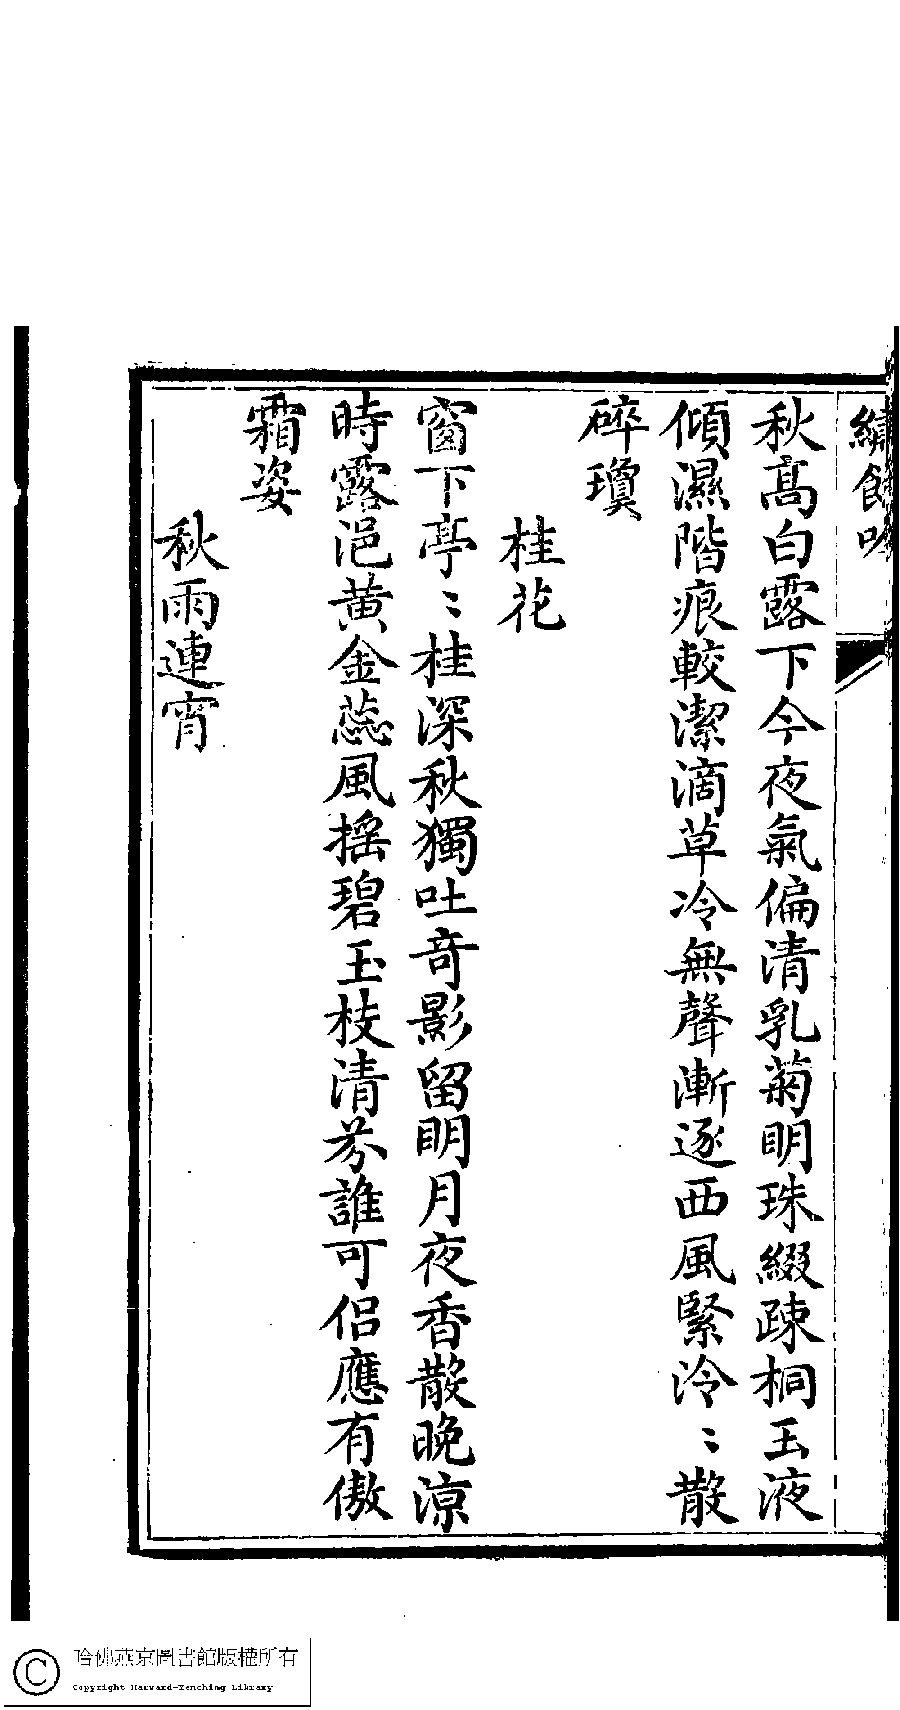 繡餘吟
秋髙白露下今夜氣偏清乳菊明珠綴疎桐玉液
傾濕階痕較潔滴草冷無聲漸逐西風緊泠〻散
碎瓊
桂花
窗下亭〻桂深秋獨吐竒影留明月夜香散晚涼
時露浥黄金蕊風揺碧玉枝清芬誰可侣應有傲
霜姿
秋雨連宵
哈佛燕京圖書館版權所有
Copyright Harvard-Yenching Library